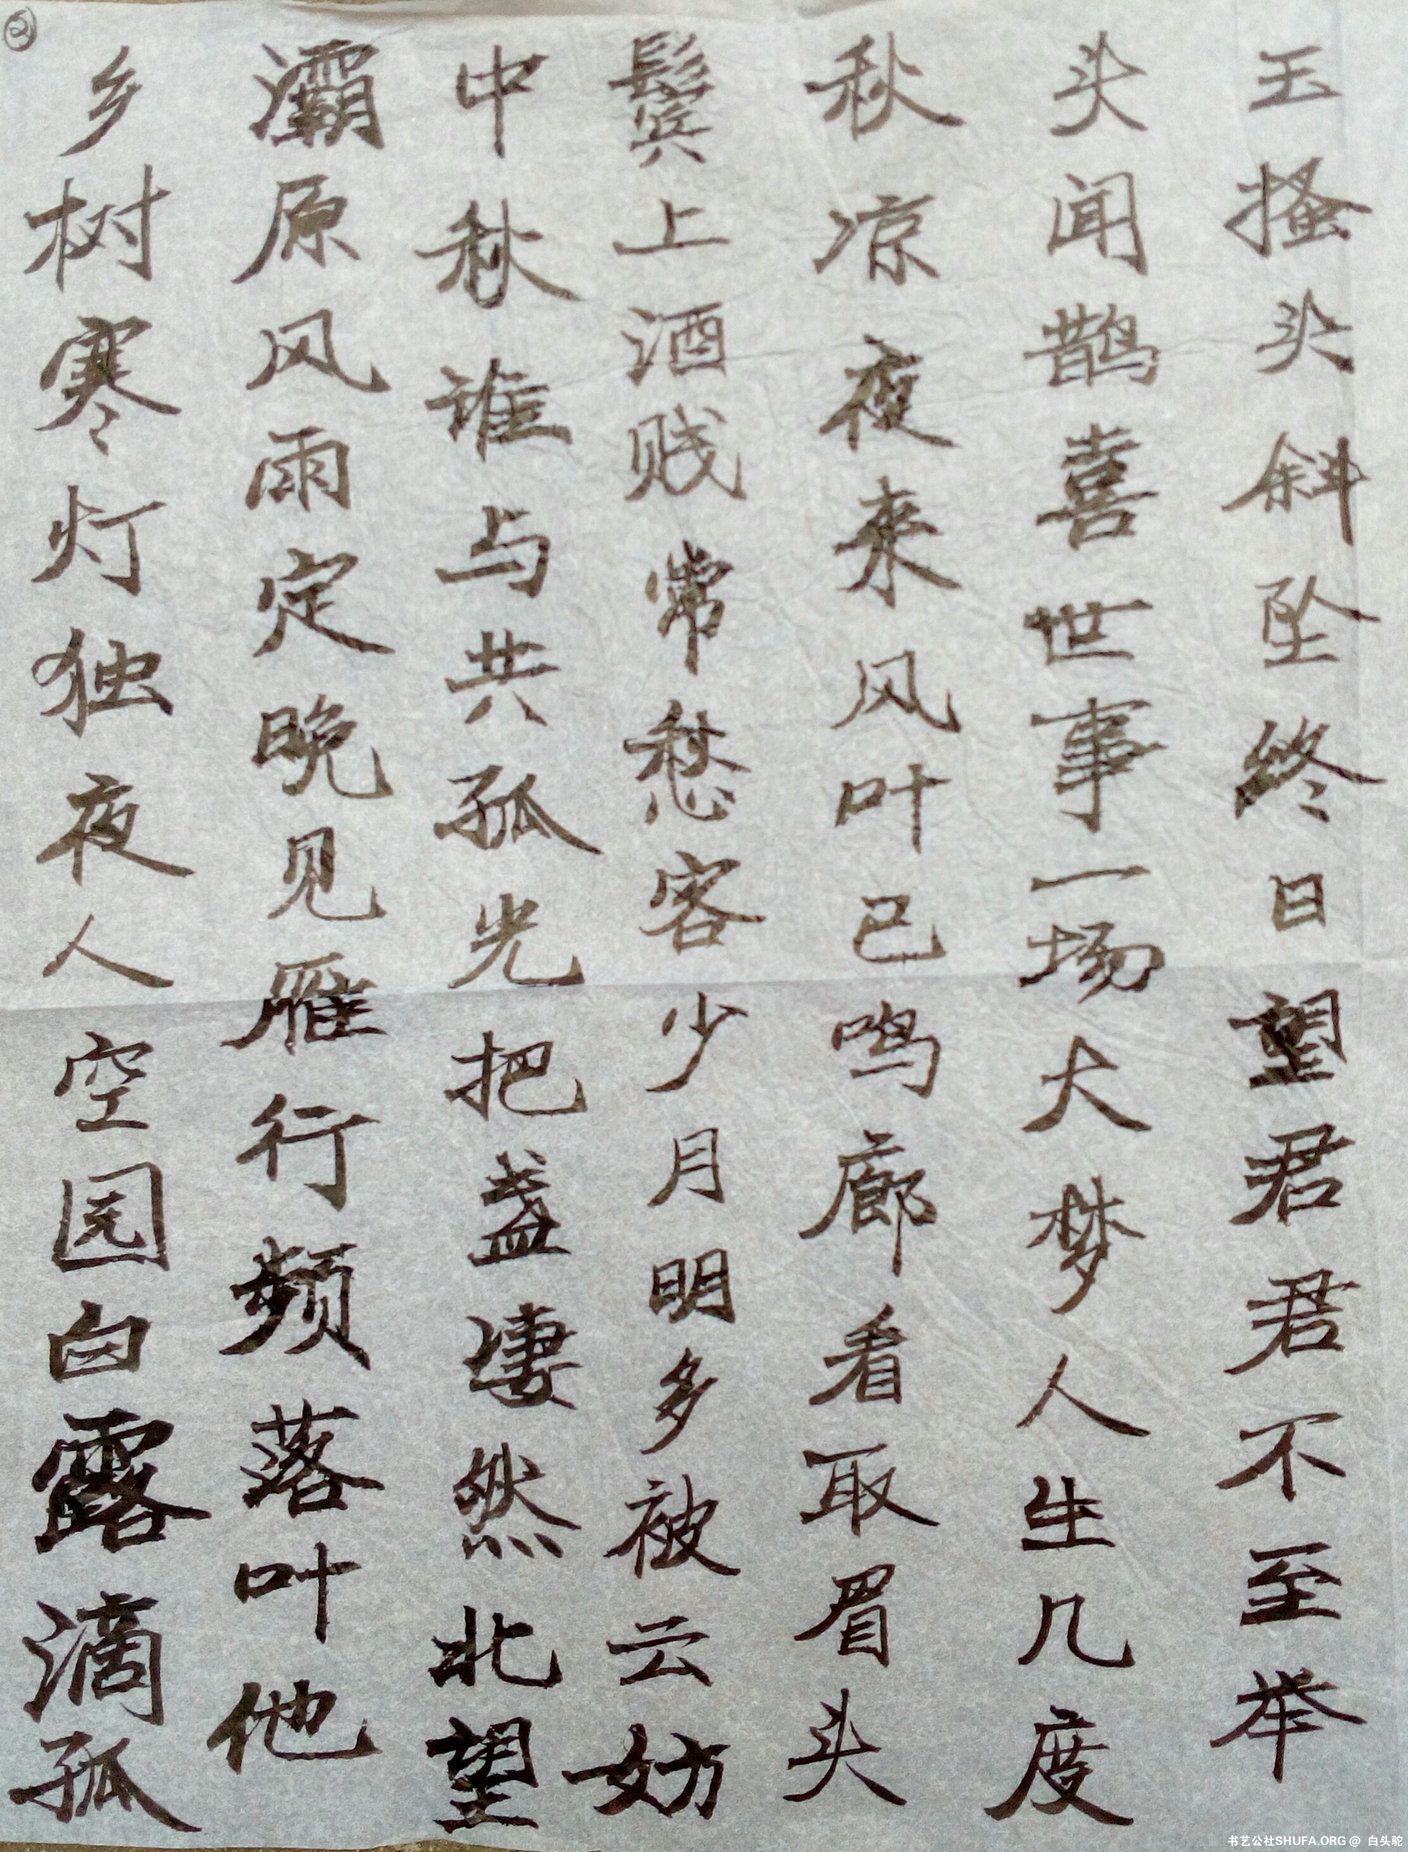 玉搔头斜坠终日望君君不至举
头闻鹊喜世事一场大梦人生几度
秋凉夜来风叶已鸣廊看取眉头
鬓上酒贱常愁客少月明多被云妨
中秋谁与共孤光把盏凄然北望
灞原风雨定晚见雁行频落叶他
乡树寒灯独夜人空园白露滴孤
②
书艺公社SHUFA.ORG @ 白头鸵